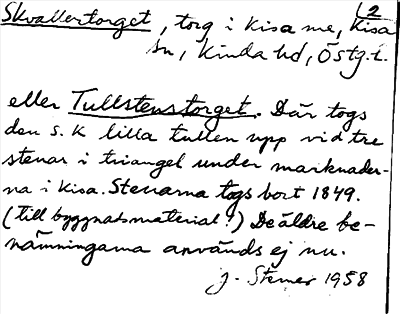 2
Skvallertorget, torg i Kisa me, Kisa
sn, Kinda hd, Östg. l.
eller Tullstenstorget. Där togs
den s. k lilla tullen upp vid tre
stenar i triangel under marknader-
na i Kisa. Stenarna togs bort 1849.
(till byggnadsmaterial!) De äldre be-
nämningarna används ej nu.
J. Sterner 1958